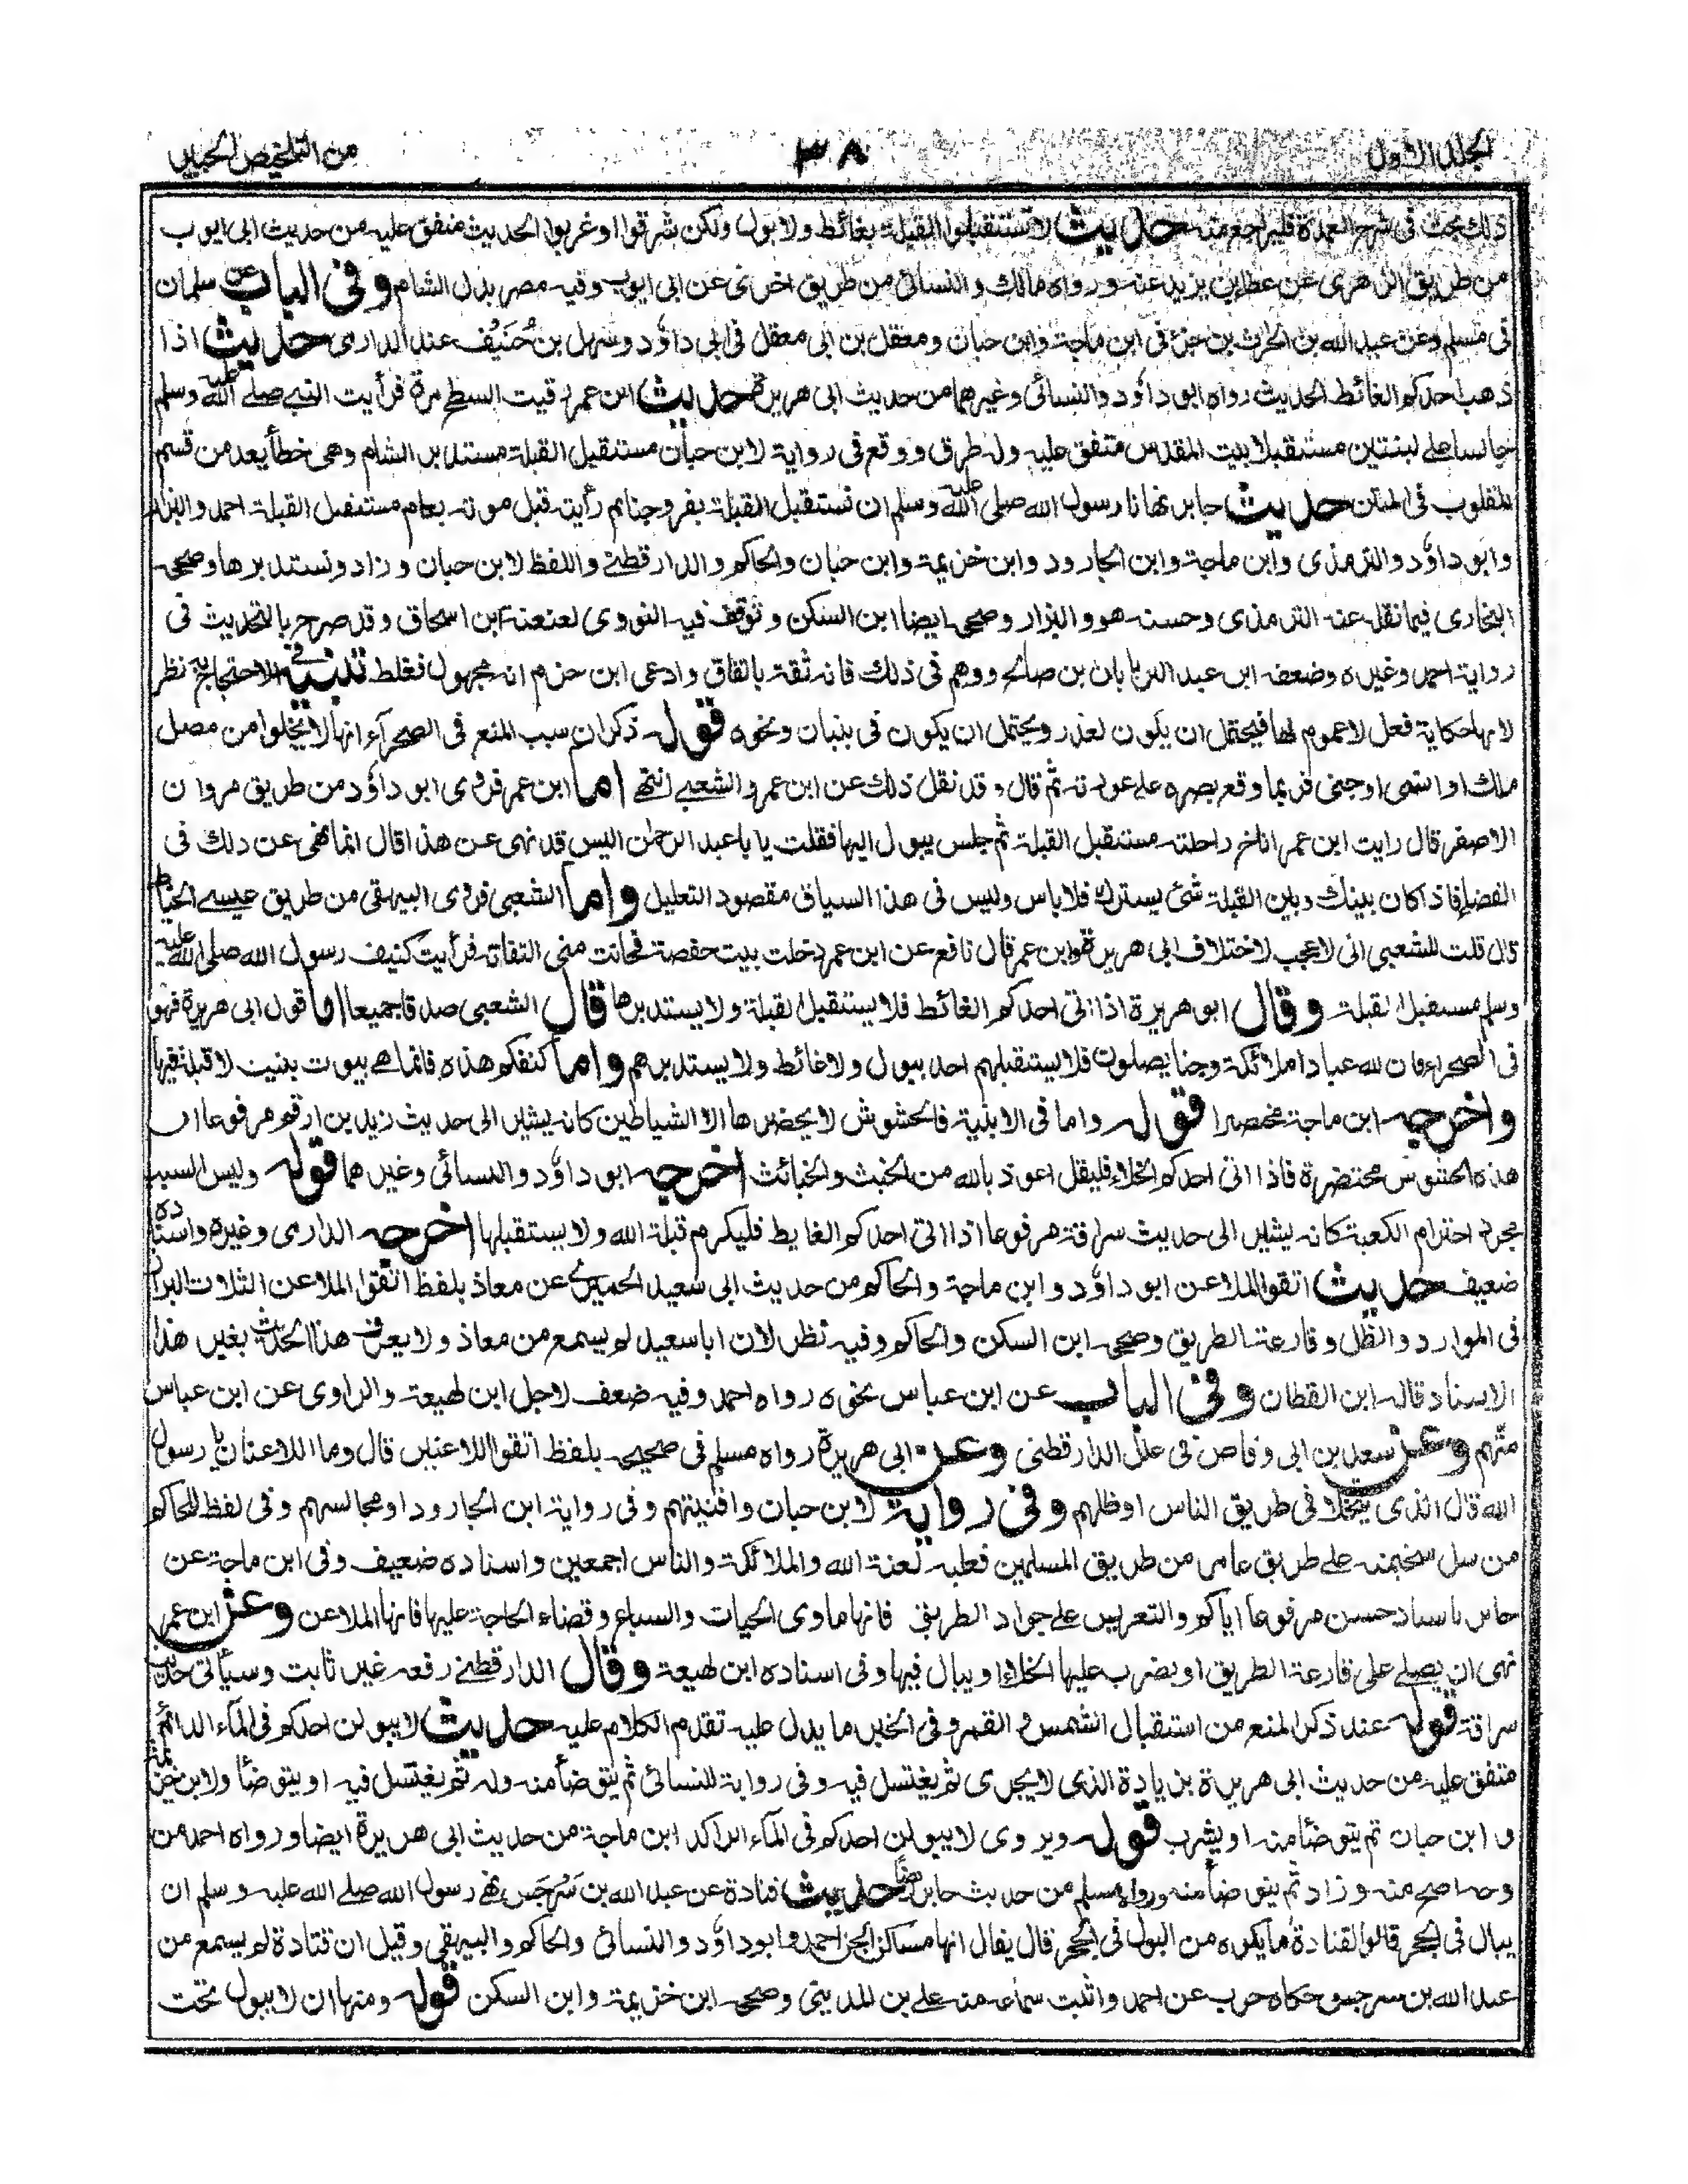 الجلد الاول ٣٨ من التلخيص الحبير
ذلك بحث فى شرح العمدة فليراجع منه حديث لا تستقبلوا القبلة بغائط ولا بول ولكن شرقوا او غربوا الحديث متفق عليه من حديث ابى ايوب
من طريق الزهرى عن عطاء بن يزيد عنه ورواه مالك والنسائى من طريق اخرى عن ابى ايوب وفيه مصر بدل الشام وفى الباب عن سلمان
فى مسلم وعن عبد الله بن الحرث بن جزء فى ابن ماجة وابن حبان ومعقل بن ابى معقل فى ابى داؤد وسهل بن حُنَيُف عند الدارمى حديث اذا
ذهب احدكم الغائط الحديث رواه ابو داؤد والنسائى وغيرهما من حديث ابى هريرة حديث ابن عمر رقيت السطح مرة فرأيت النبے صلے الله عليه وسلم
جالسا علے لبنتين مستقبلا بيت المقدس متفق عليه وله طرق ووقع فى رواية لابن حبان مستقبل القبلة مستدبر الشام وهى خطأ يعد من قسم
المقلوب فى المتن حديث جابر نهانا رسول الله صلى الله عليه وسلم ان نستقبل القبلة بفروجنا ثم رأيته قبل موته بعام مستقبل القبلة احمد والبزار
وابو داؤد والترمذى وابن ماجة وابن الجارود وابن خزيمة وابن حبان والحاكم والدارقطنے واللفظ لابن حبان وزاد ونستدبرها وصححه
البخارى فيما نقل عنه الترمذى وحسنه هو والبزار وصححه ايضا ابن السكن وتوقف فيه النووى لعنعنة ابن اسحاق وقد صرح بالتحديث فى
رواية احمد وغيره وضعفه ابن عبد البر بابان بن صالح ووهم فى ذلك فانه ثقة باتفاق وادعى ابن حزم انه مجهول فغلط تنبيه فى الاحتجاج به نظر
لانها حكاية فعل لا عموم لها فيحتمل ان يكون لعذر ويحتمل ان يكون فى بنيان ونحوه قوله ذكر ان سبب المنع فى الصحرآء انها لا يخلوا من مصل
ملك او انسى او جنى فربما وقع بصره علے عورته ثم قال وقد نقل ذلك عن ابن عمر والشعبے انتهے اما ابن عمر فروى ابو داؤد من طريق مروان
الاصفر قال رايت ابن عمر اناخ راحلته مستقبل القبلة ثم جلس يبول اليها فقلت يا با عبد الرحمٰن اليس قد نهى عن هذا قال انما نهى عن ذلك فى
الفضاء فاذا كان بينك وبين القبلة شئ يسترك فلا باس وليس فى هذا السياق مقصود التعليل واما الشعبى فروى البيهقى من طريق عيسے الخياط
قال قلت للشعبى انى لا عجب لاختلاف ابى هريرة وابن عمر قال نافع عن ابن عمر دخلت بيت حفصة فحانت منى التفاتة فرأيت كنيف رسول الله صلى الله عليه
وسلم مستقبل القبلة وقال ابو هريرة اذا اتى احدكم الغائط فلا يستقبل القبلة ولا يستدبرها قال الشعبى صدقا جميعا اما قول ابى هريرة فهو
فى الصحراء فان لله عبادا ملائكة وجنا يصلون فلا يستقبلهم احد ببول ولا غائط ولا يستدبرهم واما كنفكم هذه فانما هے بيوت بنيت لا قبلة فيها
واخرجه ابن ماجة مختصرا قوله واما فى الابنية فالحشوش لا يحضرها الا الشياطين كانه يشير الى حديث زيد بن ارقم مرفوعا ان
هذه الحشوش محتضرة فاذا اتى احدكم الخلاء فليقل اعوذ بالله من الخبث والخبائث اخرجه ابو داؤد والنسائى وغيرهما قوله وليس السبب
مجرد احترام الكعبة كانه يشير الى حديث سراقة مرفوعا اذا اتى احدكم الغايط فليكرم قبلة الله ولا يستقبلها اخرجه الدارمى وغيره واسناده
ضعيف حديث اتقوا الملاعن ابو داؤد وابن ماجة والحاكم من حديث ابى سعيد الحميرى عن معاذ بلفظ اتقوا الملاعن الثلاث البراز
فى الموارد والظل وقارعة الطريق وصححه ابن السكن والحاكم وفيه نظر لان ابا سعيد لم يسمع من معاذ ولا يعرف هذا الحديث بغير هذا
الاسناد قاله ابن القطان وفى الباب عن ابن عباس نحوه رواه احمد وفيه ضعف لاجل ابن لهيعة والراوى عن ابن عباس
متهم وعن سعد بن ابى وقاص فى علل الدارقطنى وعن ابى هريرة رواه مسلم فى صحيحه بلفظ اتقوا اللاعنين قال وما اللاعنان يا رسول
الله قال الذى يتخلا فى طريق الناس او ظلهم وفى رواية لابن حبان وافنيتهم وفى رواية ابن الجارود او مجالسهم وفى لفظ للحاكم
من سل سخيمته علے طريق عامر من طريق المسلمين فعليه لعنة الله والملائكة والناس اجمعين واسناده ضعيف وفى ابن ماجة عن
جابر باسناد حسن مرفوعا اياكم والتعريس علے جواد الطريق فانها ماوى الحيات والسباع وقضاء الحاجة عليها فانها الملاعن وعن ابن عمر
نهى ان يصلے على قارعة الطريق او يضرب عليها الخلاء او يبال فيها وفى اسناده ابن لهيعة وقال الدارقطنے رفعه غير ثابت وسيأتى حديث
سراقة قوله عند ذكر المنع من استقبال الشمس والقمر وفى الخبر ما يدل عليه تقدم الكلام عليه حديث لا يبولن احدكم فى المآء الدائم
متفق عليه من حديث ابى هريرة بزيادة الذى لا يجرى ثم يغتسل فيه وفى رواية للنسائى ثم يتوضأ منه وله ثم يغتسل فيه او يتوضأ ولابن خزيمة
وابن حبان ثم يتوضأ منه او يشرب قوله ويروى لا يبولن احدكم فى المآء الراكد ابن ماجة من حديث ابى هريرة ايضا ورواه احمد من
وجه اصح منه وزاد ثم يتوضأ منه ورواه مسلم من حديث جابر ايضًا حديث قتادة عن عبد الله بن سَرْجَس نهے رسول الله صلے الله عليه وسلم ان
يبال فى الجحر قالوا لقتادة ما يكره من البول فى الجحر قال يقال انها مساكن الجن احمد وابو داؤد والنسائى والحاكم والبيهقى وقيل ان قتادة لم يسمع من
عبد الله بن سرجس حكاه حرب عن احمد واثبت سماعه منه علے بن المدينى وصححه ابن خزيمة وابن السكن قوله ومنها ان لا يبول تحت